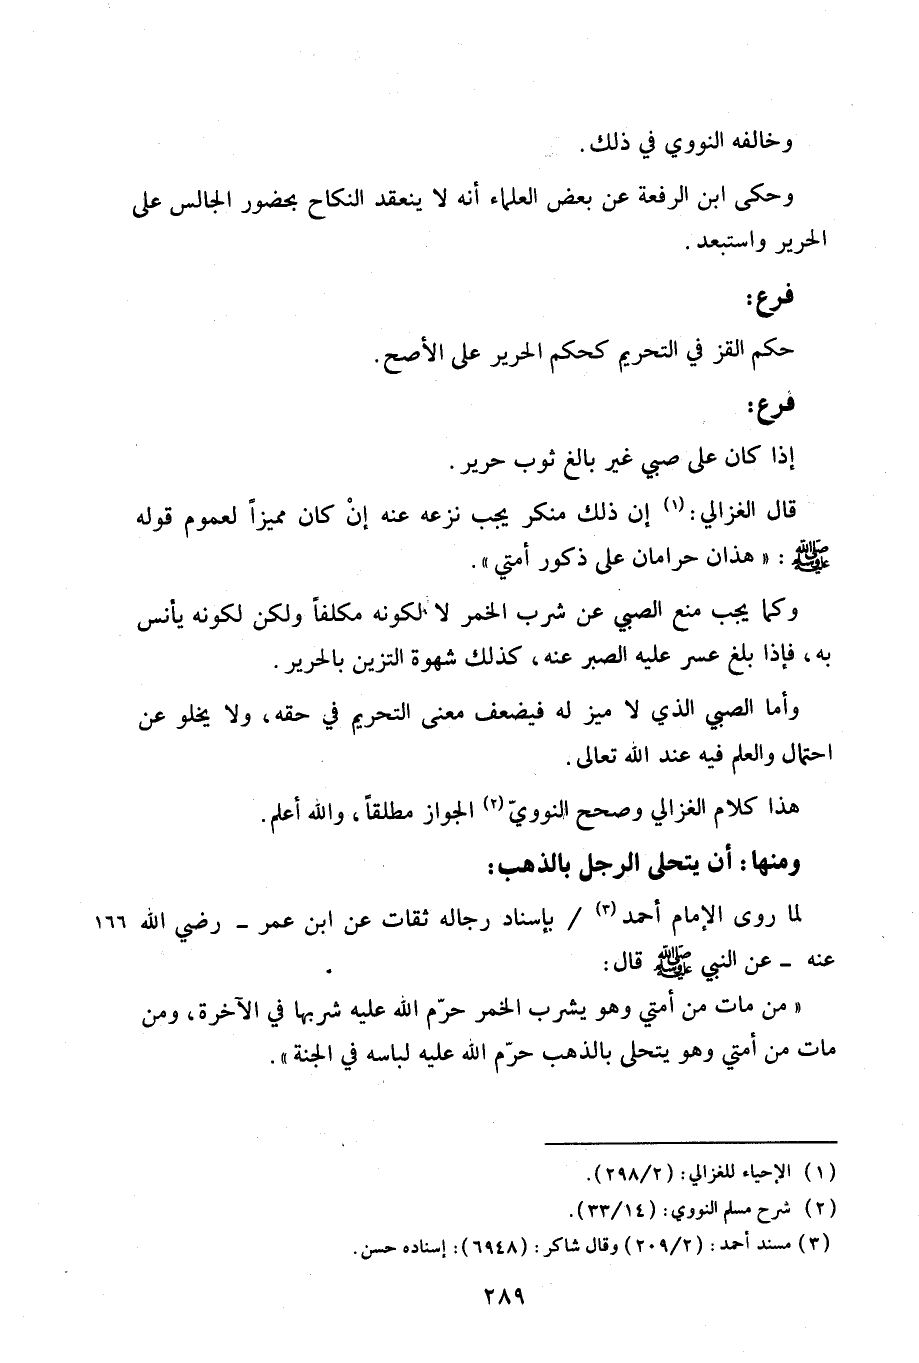 وخالفه النووي في ذلك.
وحكى ابن الرفعة عن بعض العلماء أنه لا ينعقد النكاح بحضور الجالس على
الحرير واستبعد.
فرع:
حكم القز في التحريم كحكم الحرير على الأصح.
فرع:
إذا كان على صبي غير بالغ ثوب حرير.
قال الغزالي:(١) إن ذلك منكر يجب نزعه عنه إنْ كان مميزاً لعموم قوله
ﷺ: «هذان حرامان على ذكور أمتي».
وكما يجب منع الصبي عن شرب الخمر لا لكونه مكلفاً ولكن لكونه يأنس
به، فإذا بلغ عسر عليه الصبر عنه، كذلك شهوة التزين بالحرير.
وأما الصبي الذي لا ميز له فيضعف معنى التحريم في حقه، ولا يخلو عن
احتمال والعلم فيه عند الله تعالى.
هذا كلام الغزالي وصحح النوويّ(٢) الجواز مطلقاً، والله أعلم.
ومنها: أن يتحلى الرجل بالذهب:
لما روى الإمام أحمد(٣) / بإسناد رجاله ثقات عن ابن عمر - رضي الله ١٦٦
عنه - عن النبي ﷺ قال:
«من مات من أمتي وهو يشرب الخمر حرّم الله عليه شربها في الآخرة، ومن
مات من أمتي وهو يتحلى بالذهب حرّم الله عليه لباسه في الجنة».
(١) الإحياء للغزالي: (٢٩٨/٢).
(٢) شرح مسلم النووي: (٣٣/١٤).
(٣) مسند أحمد: (٢٠٩/٢) وقال شاكر: (٦٩٤٨): إسناده حسن.
٢٨٩